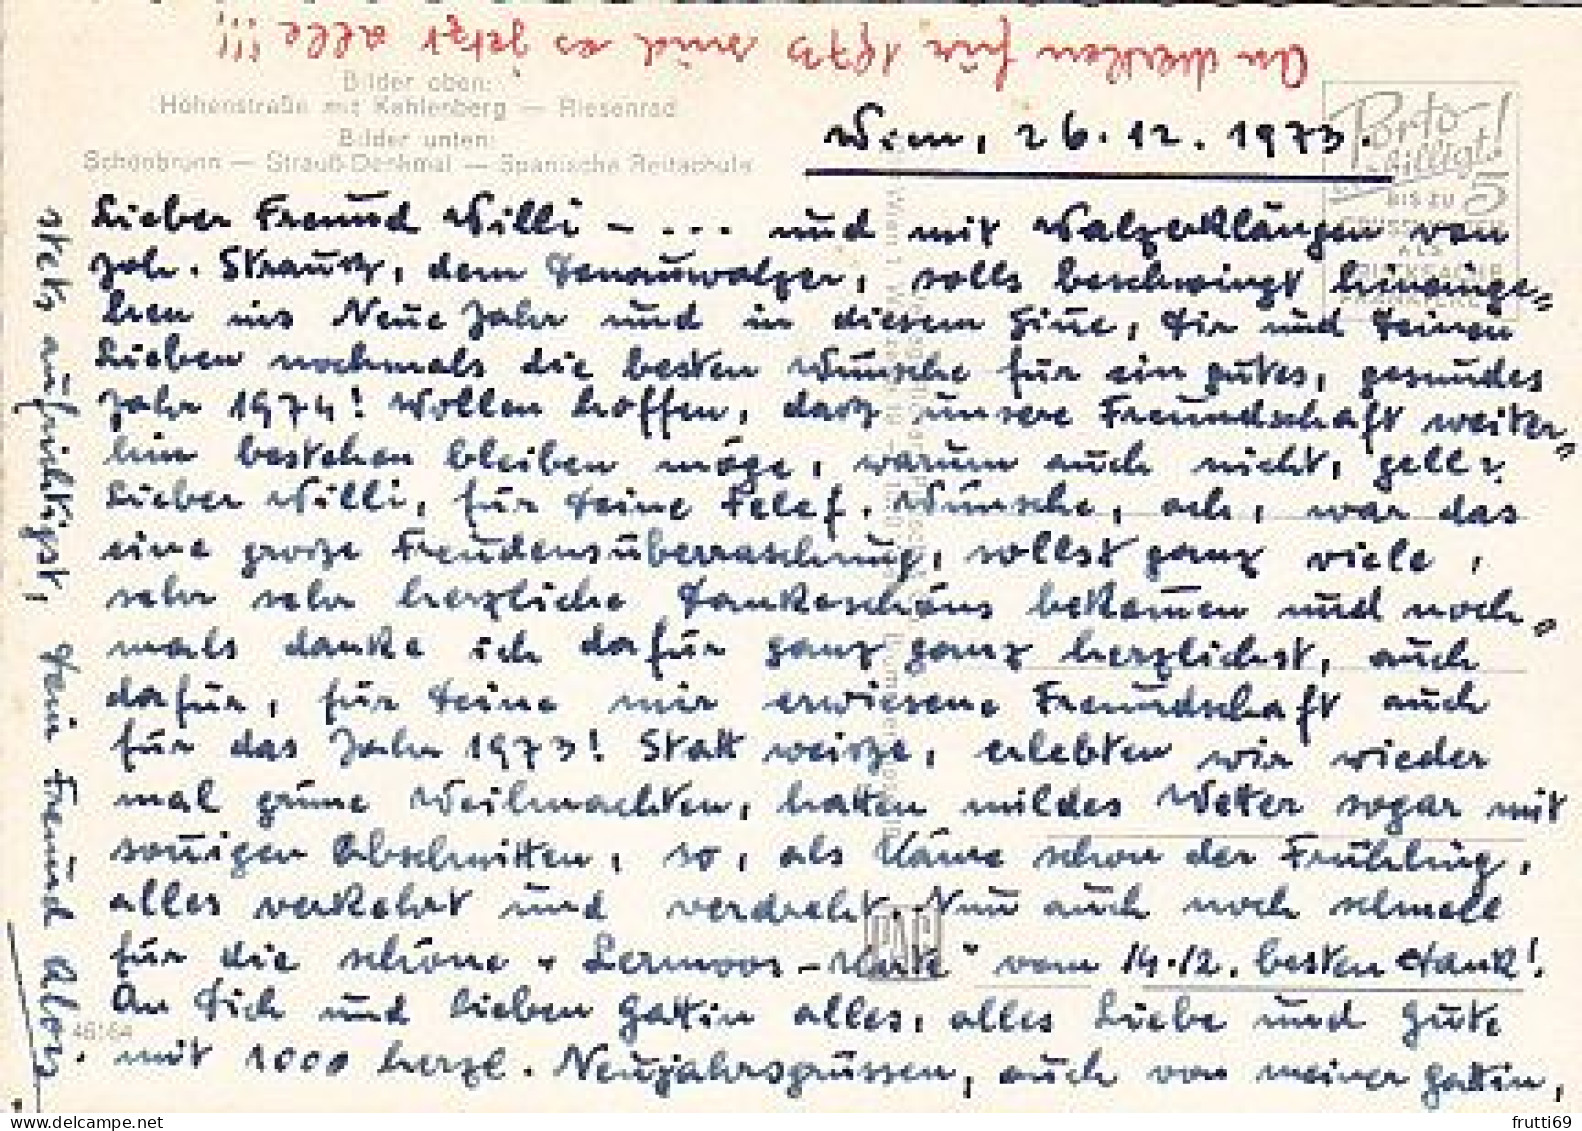 An Marken für 1973 sind es jetzt alle!!!
Bilder oben:
Höhenstraße mit Kahlenberg — Riesenrad
Bilder unten:
Schönbrunn — Strauß-Denkmal — Spanische Reitschule
Porto
billigt!
BIS ZU 5
GRUSSWORTEN
ALS
DRUCKSACHE
Wien, 26.12.1973.
Lieber Freund Willi – ... und mit Walzerklängen von
Joh. Strauß, dem Donauwalzer, solls beschwingt hineinge„
hen ins Neue Jahr und in diesem Sinne, Dir und Deinen
Lieben nochmals die besten Wünsche für ein gutes, gesundes
Jahr 1974! Wollen hoffen, daß unsere Freundschaft weiter„
hin bestehen bleiben möge, warum auch nicht, gell?
Lieber Willi, für Deine Telef. Wünsche, ach, war das
eine große Freudensüberraschung, sollst ganz viele,
sehr sehr herzliche Dankeschöns bekom̄en und noch„
mals danke ich dafür ganz ganz herzlichst, auch
dafür, für Deine mir erwiesene Freundschaft auch
für das Jahr 1973! Statt weiße, erlebten wir wieder
mal grüne Weihnachten, hatten mildes Wetter sogar mit
son̄igen Abschnitten, so, als käme schon der Frühling,
alles verkehrt und verdreht. Nun auch noch schnell
für die schöne „Lermoos-Karte" vom 14.12. besten Dank!.
An Dich und lieben Gattin alles, alles Liebe und Gute
mit 1000 herzl. Neujahrsgrüssen, auch von meiner Gattin,
stets aufrichtigst, Dein Freund Alois.
PAG
46164
frutti69